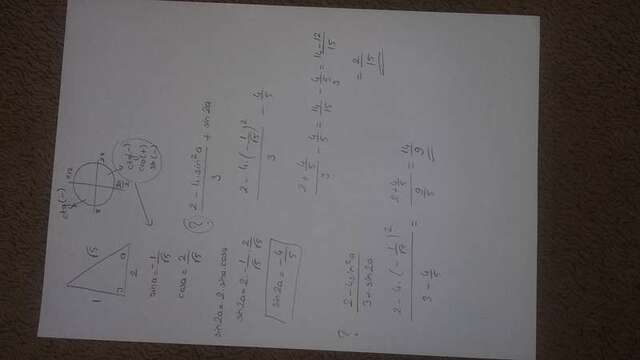 ctg(-)
π/2
2π
π
3π/2
ctg(-)
cos(+)
sin(-)
√5
1
2
a
sina = -1/√5
cosa = 2/√5
sin2a = 2·sina·cosa
sin2a = 2·-1/√5 · 2/√5
sin2a = -4/5
? 2-4·sin²a / 3 + sin2a
2-4·(-1/√5)² / 3 - 4/5
2+4/5 / 3 - 4/5 = 14/15 - 4/5 = 14-12 / 15
3
= 2/15
? 2-4sin²a / 3+sin2a
2-4·(-1/√5)² / 3-4/5 = 2+4/5 / 9/5 = 14/9